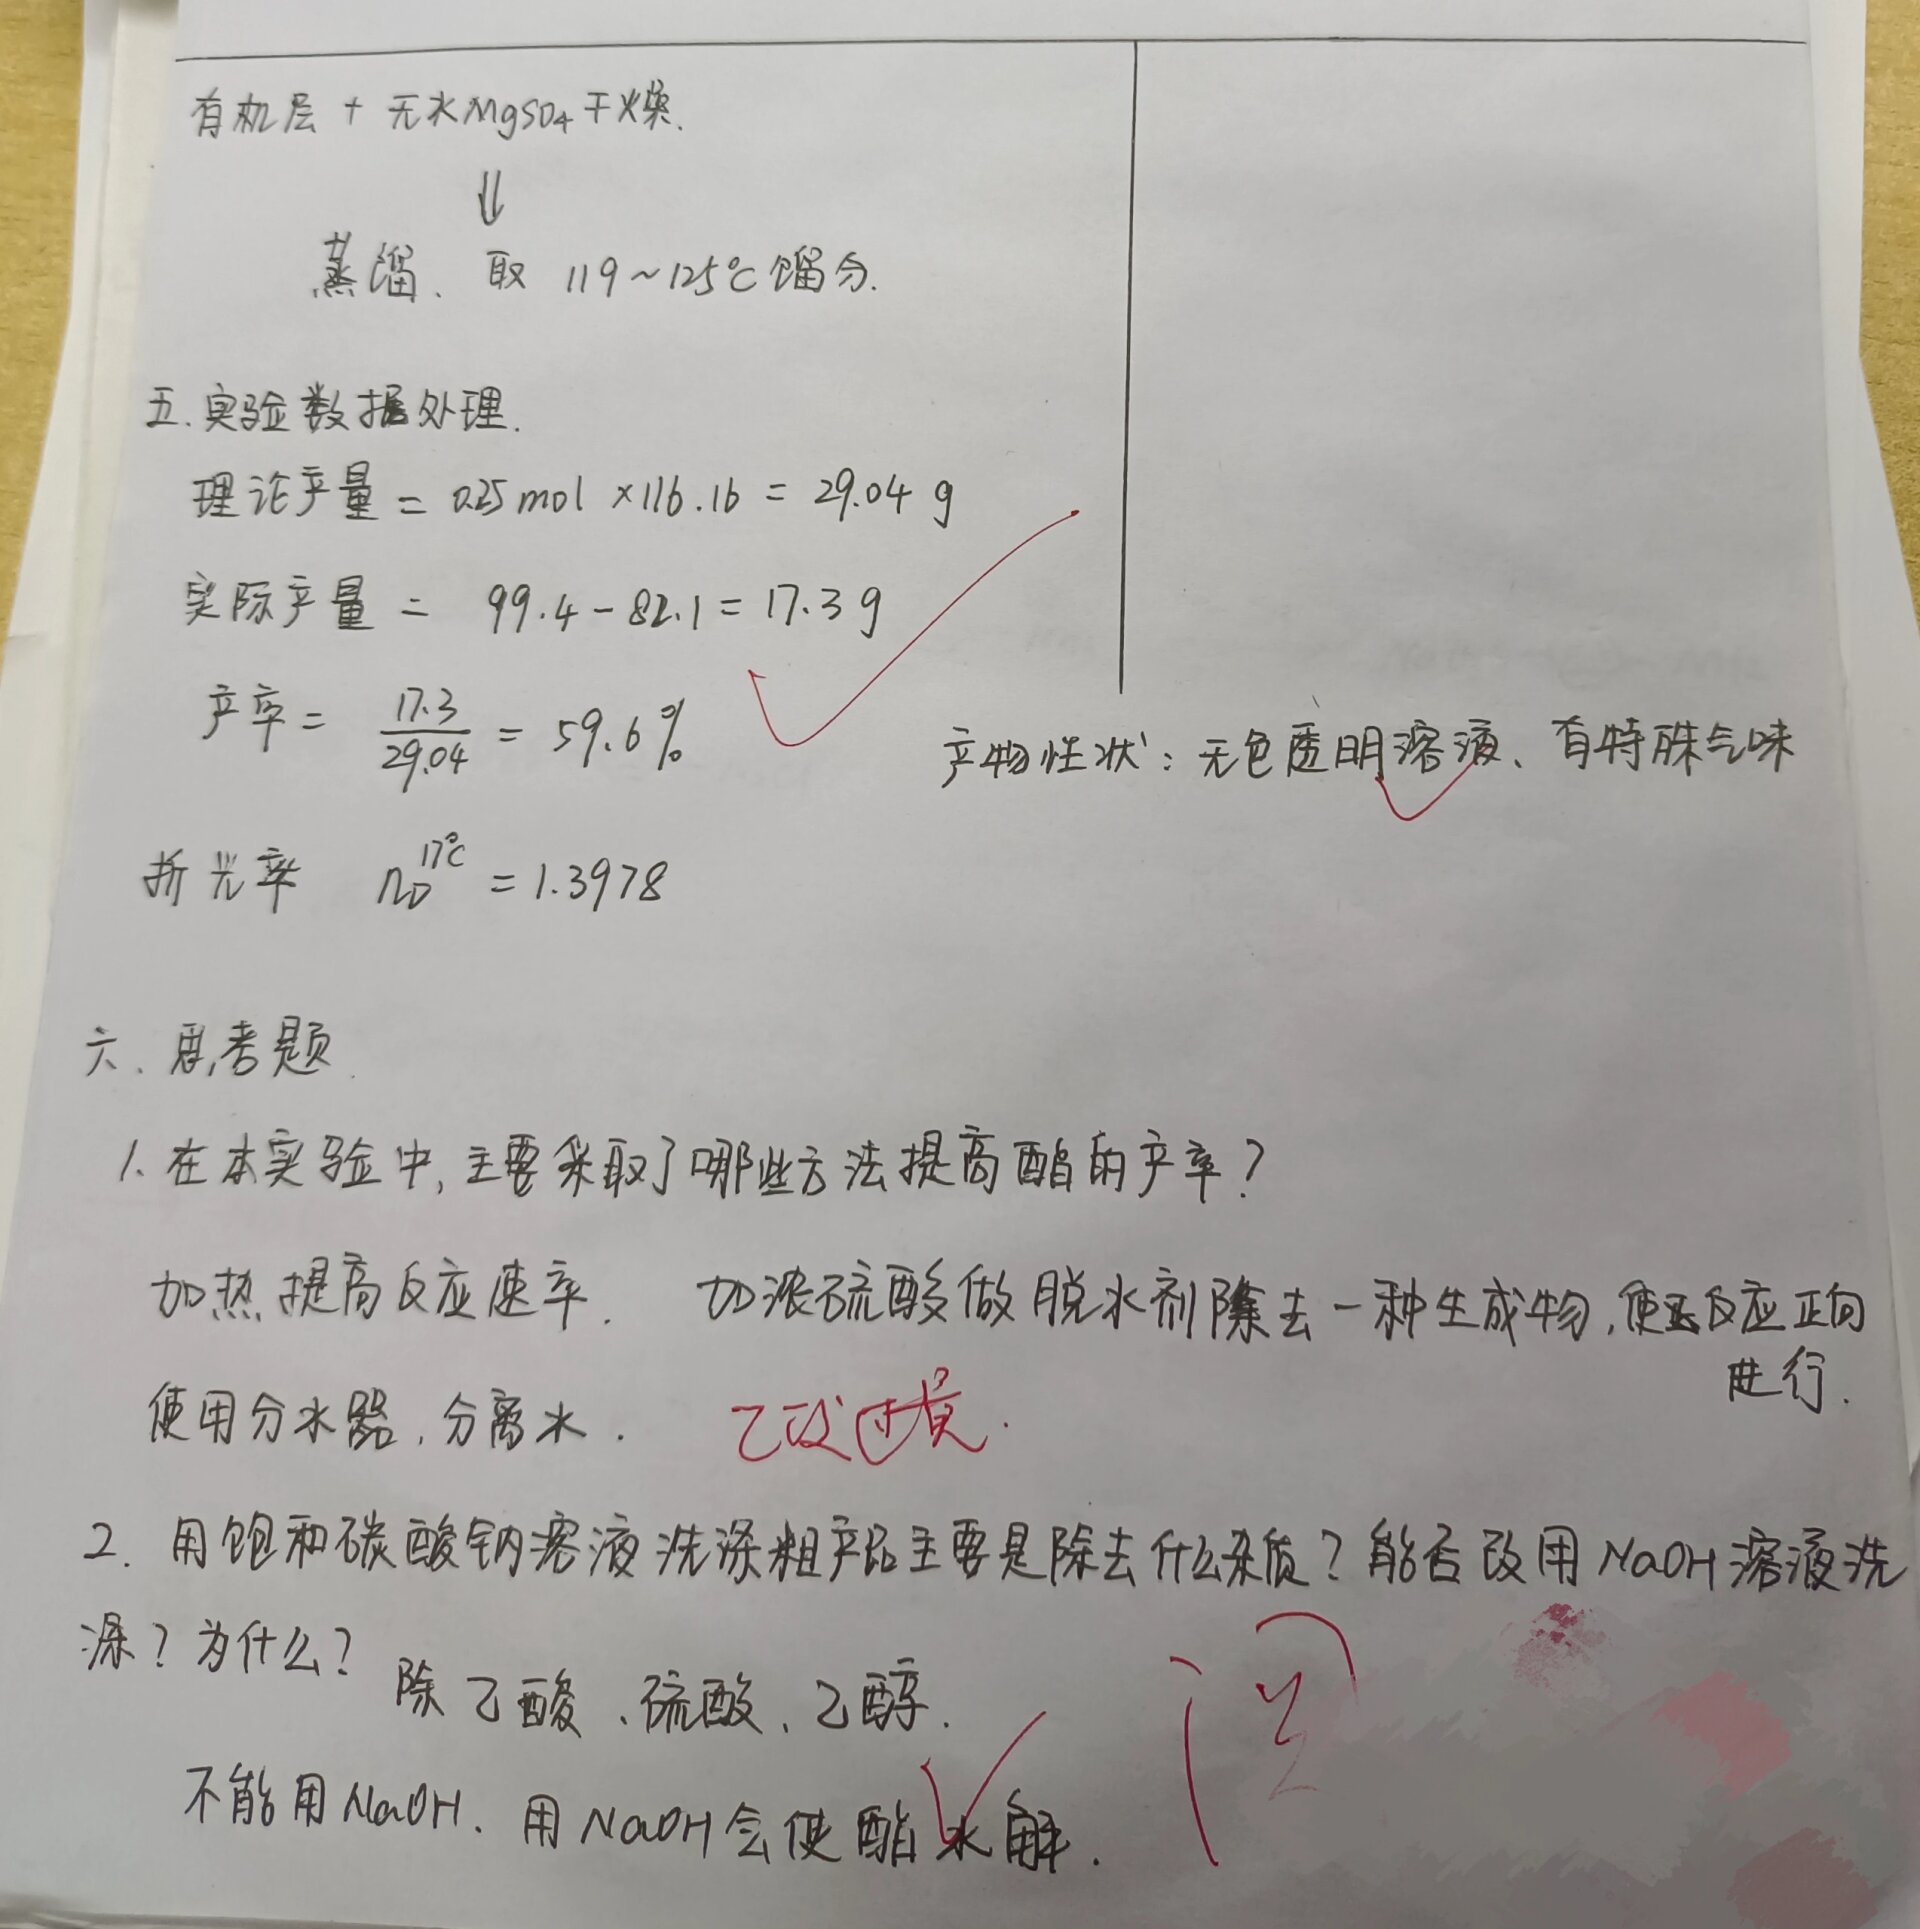 有机层 + 无水MgSO4干燥.
⇓
蒸馏、取 119~125℃馏分.
五.实验数据处理.
理论产量 = 0.25mol ×116.16 = 29.04 g
实际产量 = 99.4-82.1=17.3g
产率= 17.3/29.04 = 59.6%
产物性状:无色透明溶液、有特殊气味
折光率 nD^17℃ =1.3978
六、思考题
1.在本实验中,主要采取了哪些方法提高酯的产率?
加热提高反应速率. 加浓硫酸做脱水剂除去一种生成物,使反应正向
进行.
使用分水器,分离水. 乙酸过量.
2. 用饱和碳酸钠溶液洗涤粗产品主要是除去什么杂质?能否改用NaOH溶液洗
涤?为什么?
除乙酸、硫酸、乙醇.
不能用NaOH. 用NaOH会使酯水解.